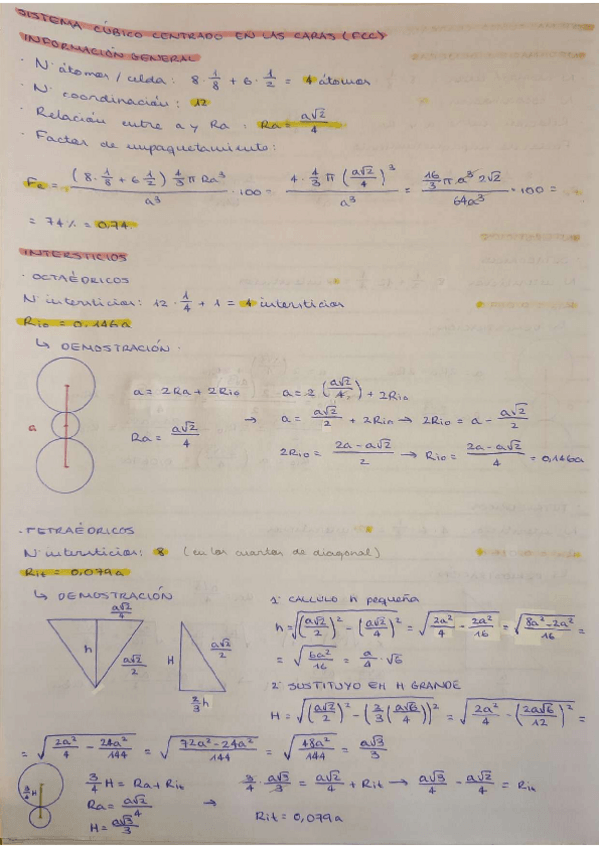 SISTEMA CÚBICO CENTRADO EN LAS CARAS (FCC)
INFORMACIÓN GENERAL
· Nº átomos / celda: 8 · 1/8 + 6 · 1/2 = 4 átomos
· Nº coordinación: 12
· Relación entre a y Ra : Ra = a√2/4
· Factor de empaquetamiento:
Fe = (8 · 1/8 + 6 1/2) 4/3 π Ra³ / a³ · 100 = 4 · 4/3 π (a√2/4)³ / a³ = 16/3 π a³ 2√2 / 64a³ · 100 =
= 74% = 0,74
INTERSTICIOS
· OCTAÉDRICOS
Nº intersticios: 12 · 1/4 + 1 = 4 intersticios
Rio = 0,146a
↳ DEMOSTRACIÓN ·
a
a = 2Ra + 2Rio
Ra = a√2/4
→
a = 2 (a√2/4) + 2Rio
a = a√2/2 + 2Rio → 2Rio = a - a√2/2
2Rio = 2a - a√2 / 2 → Rio = 2a - a√2 / 4 = 0,146a
· TETRAÉDRICOS
Nº intersticios: 8 (en los cuartos de diagonal)
Rit = 0,079a
↳ DEMOSTRACIÓN
a√2/4
h
a√2/2
H
a√2/2
2/3 h
1º CALCULO h pequeña
h = √((a√2/2)² - (a√2/4)²) = √(2a²/4 - 2a²/16) = √(8a² - 2a² / 16) =
= √(6a²/16) = a/4 · √6
2º SUSTITUYO EN H GRANDE
H = √((a√2/2)² - (2/3 (a√6/4))²) = √(2a²/4 - (2a√6/12)²) =
= √(2a²/4 - 24a²/144) = √(72a² - 24a² / 144) = √(48a²/144) = a√3/3
3/4 H
3/4 H = Ra + Rit
Ra = a√2/4
H = a√3/3
→
3/4 · a√3/3 = a√2/4 + Rit → a√3/4 - a√2/4 = Rit
Rit = 0,079a